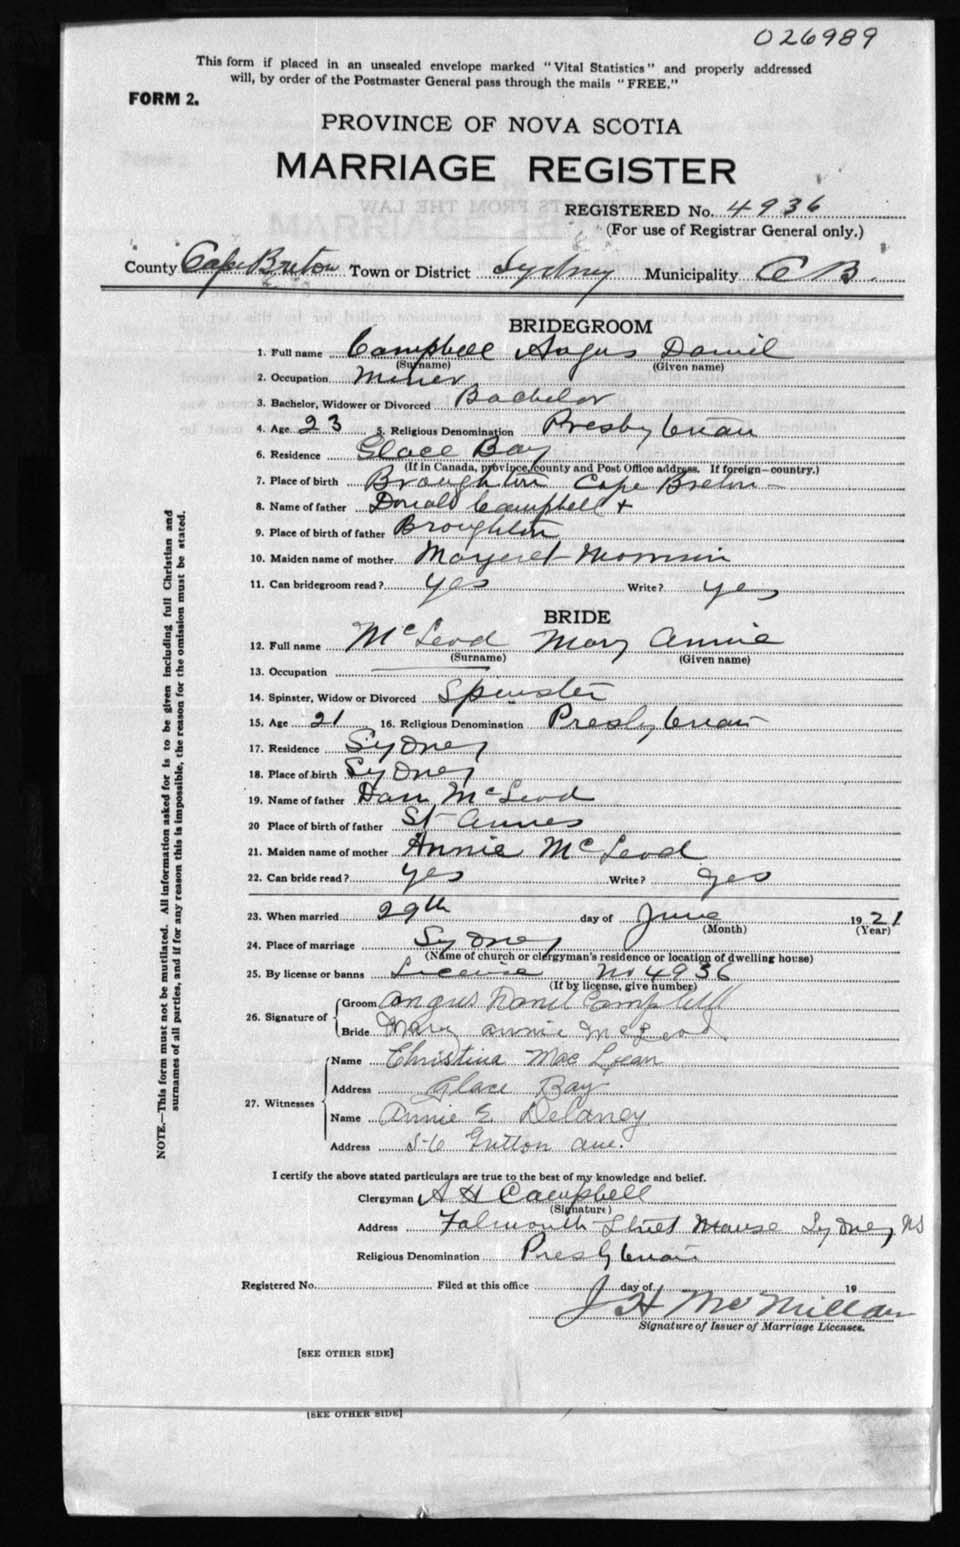 026989
This form if placed in an unsealed envelope marked "Vital Statistics" and properly addressed
will, by order of the Postmaster General pass through the mails "FREE."
FORM 2.
PROVINCE OF NOVA SCOTIA
MARRIAGE REGISTER
REGISTERED No. 4936
(For use of Registrar General only.)
County Cape Breton Town or District Sydney Municipality C B.
BRIDEGROOM
1. Full name Campbell Angus Daniel
(Surname) (Given name)
2. Occupation Miner
3. Bachelor, Widower or Divorced Bachelor
4. Age 23 5. Religious Denomination Presbyterian
6. Residence Glace Bay
(If in Canada, province, county and Post Office address. If foreign—country.)
7. Place of birth Broughton Cape Breton
8. Name of father Donald Campbell +
9. Place of birth of father Broughton
10. Maiden name of mother Margeret Morrison
11. Can bridegroom read? yes Write? yes
BRIDE
12. Full name McLeod Mary Annie
(Surname) (Given name)
13. Occupation
14. Spinster, Widow or Divorced Spinster
15. Age 21 16. Religious Denomination Presbyterian
17. Residence Sydney
18. Place of birth Sydney
19. Name of father Dan McLeod
20 Place of birth of father St Annes
21. Maiden name of mother Annie McLeod
22. Can bride read? yes Write? yes
23. When married 29th day of June 1921
(Month) (Year)
24. Place of marriage Sydney
(Name of church or clergyman's residence or location of dwelling house)
25. By license or banns License No 4936
(If by license, give number)
26. Signature of Groom Angus Daniel Campbell
Bride Mary Annie McLeod
27. Witnesses Name Christina MacLean
Address Glace Bay
Name Annie E. Delaney
Address 56 Ave.
I certify the above stated particulars are true to the best of my knowledge and belief.
Clergyman A H Campbell
(Signature)
Address Falmouth Street Manse Sydney NS
Religious Denomination Presbyterian
Registered No. Filed at this office day of 19
J H McMillan
Signature of Issuer of Marriage Licenses.
[SEE OTHER SIDE]
[SEE OTHER SIDE]
NOTE.—This form must not be mutilated. All information asked for is to be given including full Christian and
surnames of all parties, and if for any reason this is impossible, the reason for the omission must be stated.